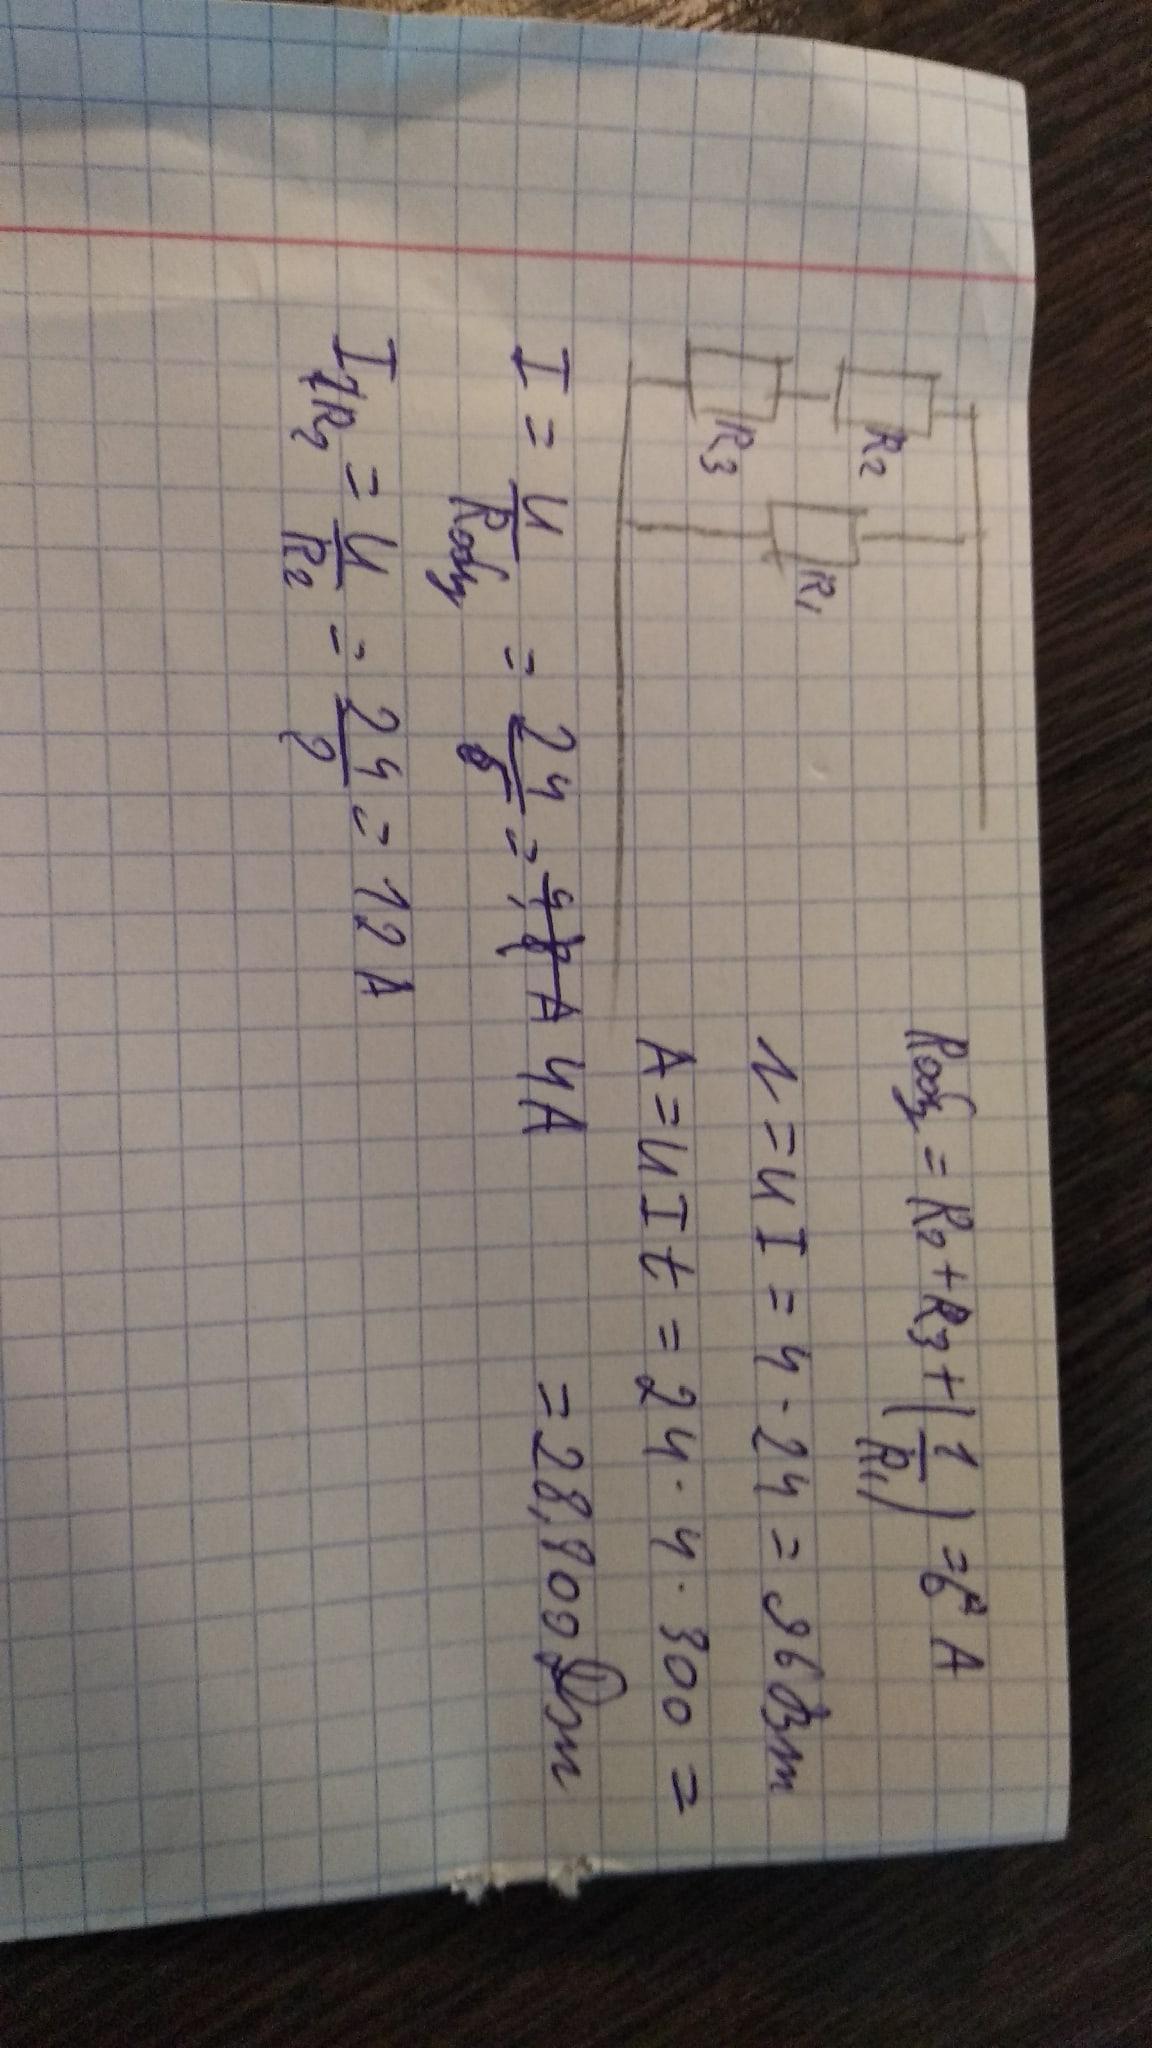 R2
R3
R1
Rобщ = R2 + R3 + (1/R1) = 6 A
N = UI = 4 · 24 = 96 Вт
A = UIt = 24 · 4 · 300 =
= 28,800 Дж
I = U/Rобщ = 24/6 = 4A
= U/R2 = 24/2 = 12 A